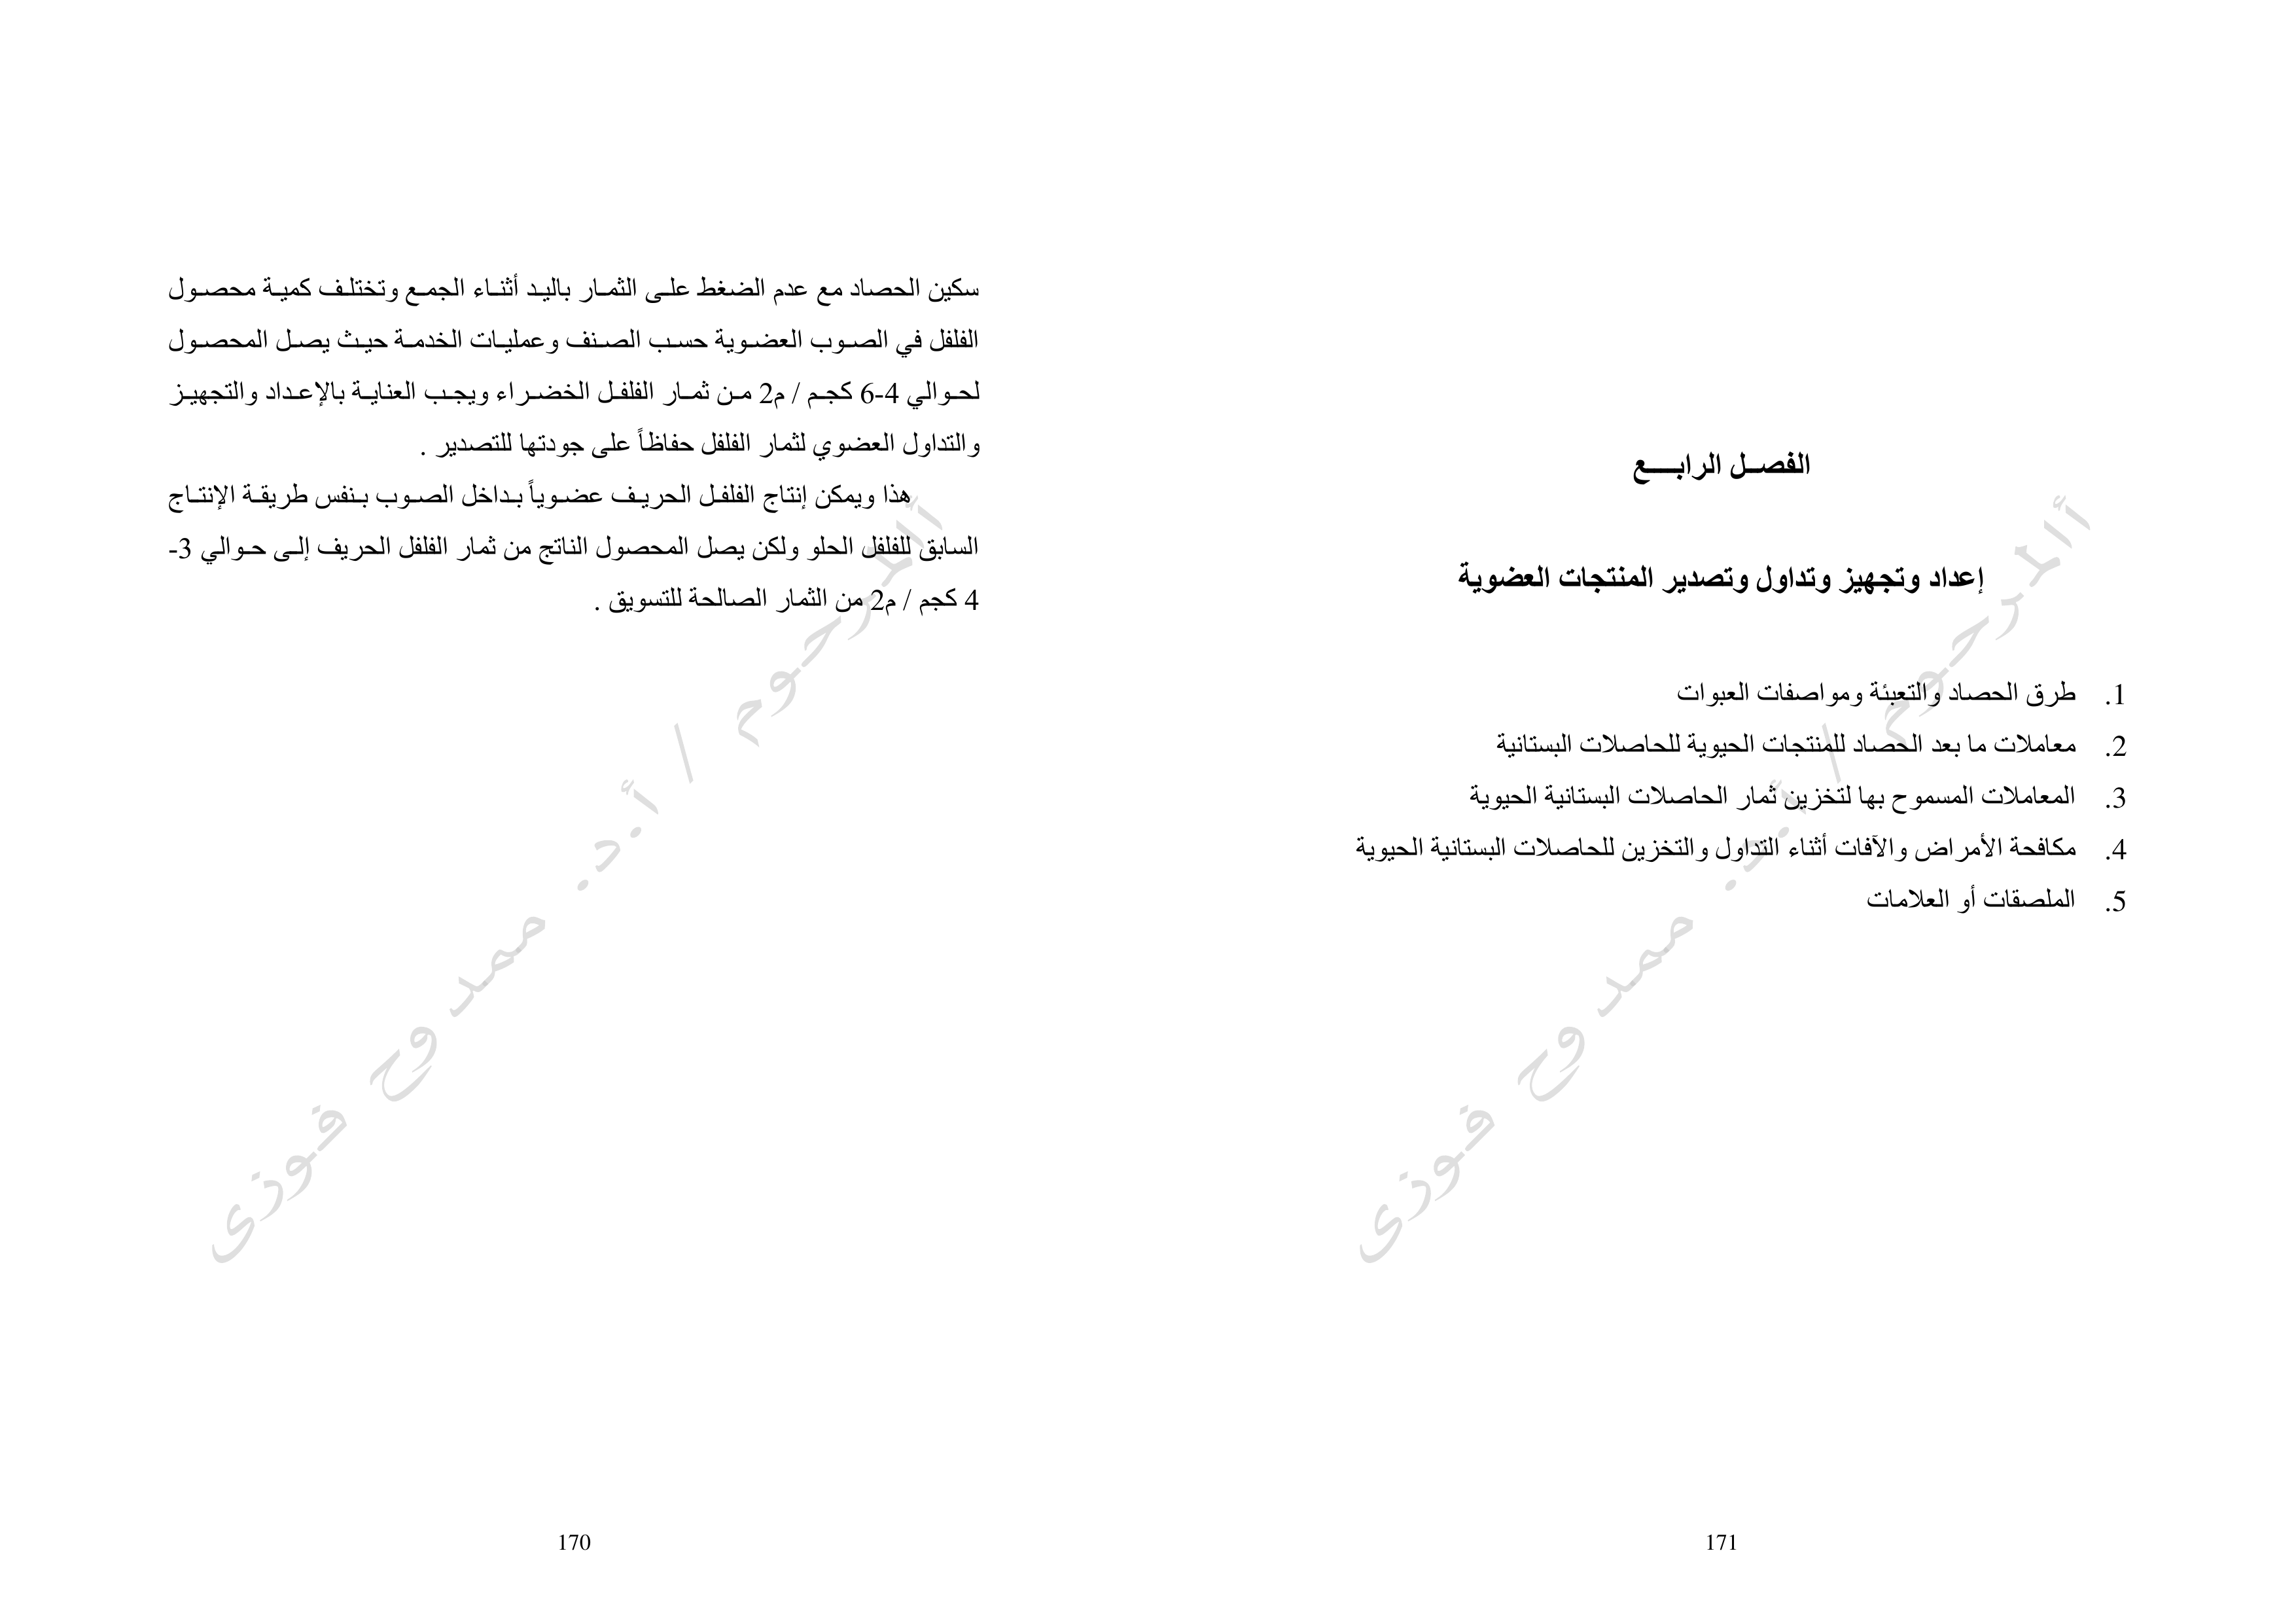 سكين الحصاد مع عدم الضغط على الثمار باليد أثناء الجمع وتختلف كمية محصول
الفلفل في الصوب العضوية حسب الصنف وعمليات الخدمة حيث يصل المحصول
لحوالي 4-6 كجم / م2 من ثمار الفلفل الخضراء ويجب العناية بالإعداد والتجهيز
والتداول العضوي لثمار الفلفل حفاظاً على جودتها للتصدير .
هذا ويمكن إنتاج الفلفل الحريف عضوياً بداخل الصوب بنفس طريقة الإنتاج
السابق للفلفل الحلو ولكن يصل المحصول الناتج من ثمار الفلفل الحريف إلى حوالي 3-
4 كجم / م2 من الثمار الصالحة للتسويق .
المرحوم / أ.د. ممدوح فوزى
170
الفصل الرابع
إعداد وتجهيز وتداول وتصدير المنتجات العضوية
1. طرق الحصاد والتعبئة ومواصفات العبوات
2. معاملات ما بعد الحصاد للمنتجات الحيوية للحاصلات البستانية
3. المعاملات المسموح بها لتخزين ثمار الحاصلات البستانية الحيوية
4. مكافحة الأمراض والآفات أثناء التداول والتخزين للحاصلات البستانية الحيوية
5. الملصقات أو العلامات
المرحوم / أ.د. ممدوح فوزى
171